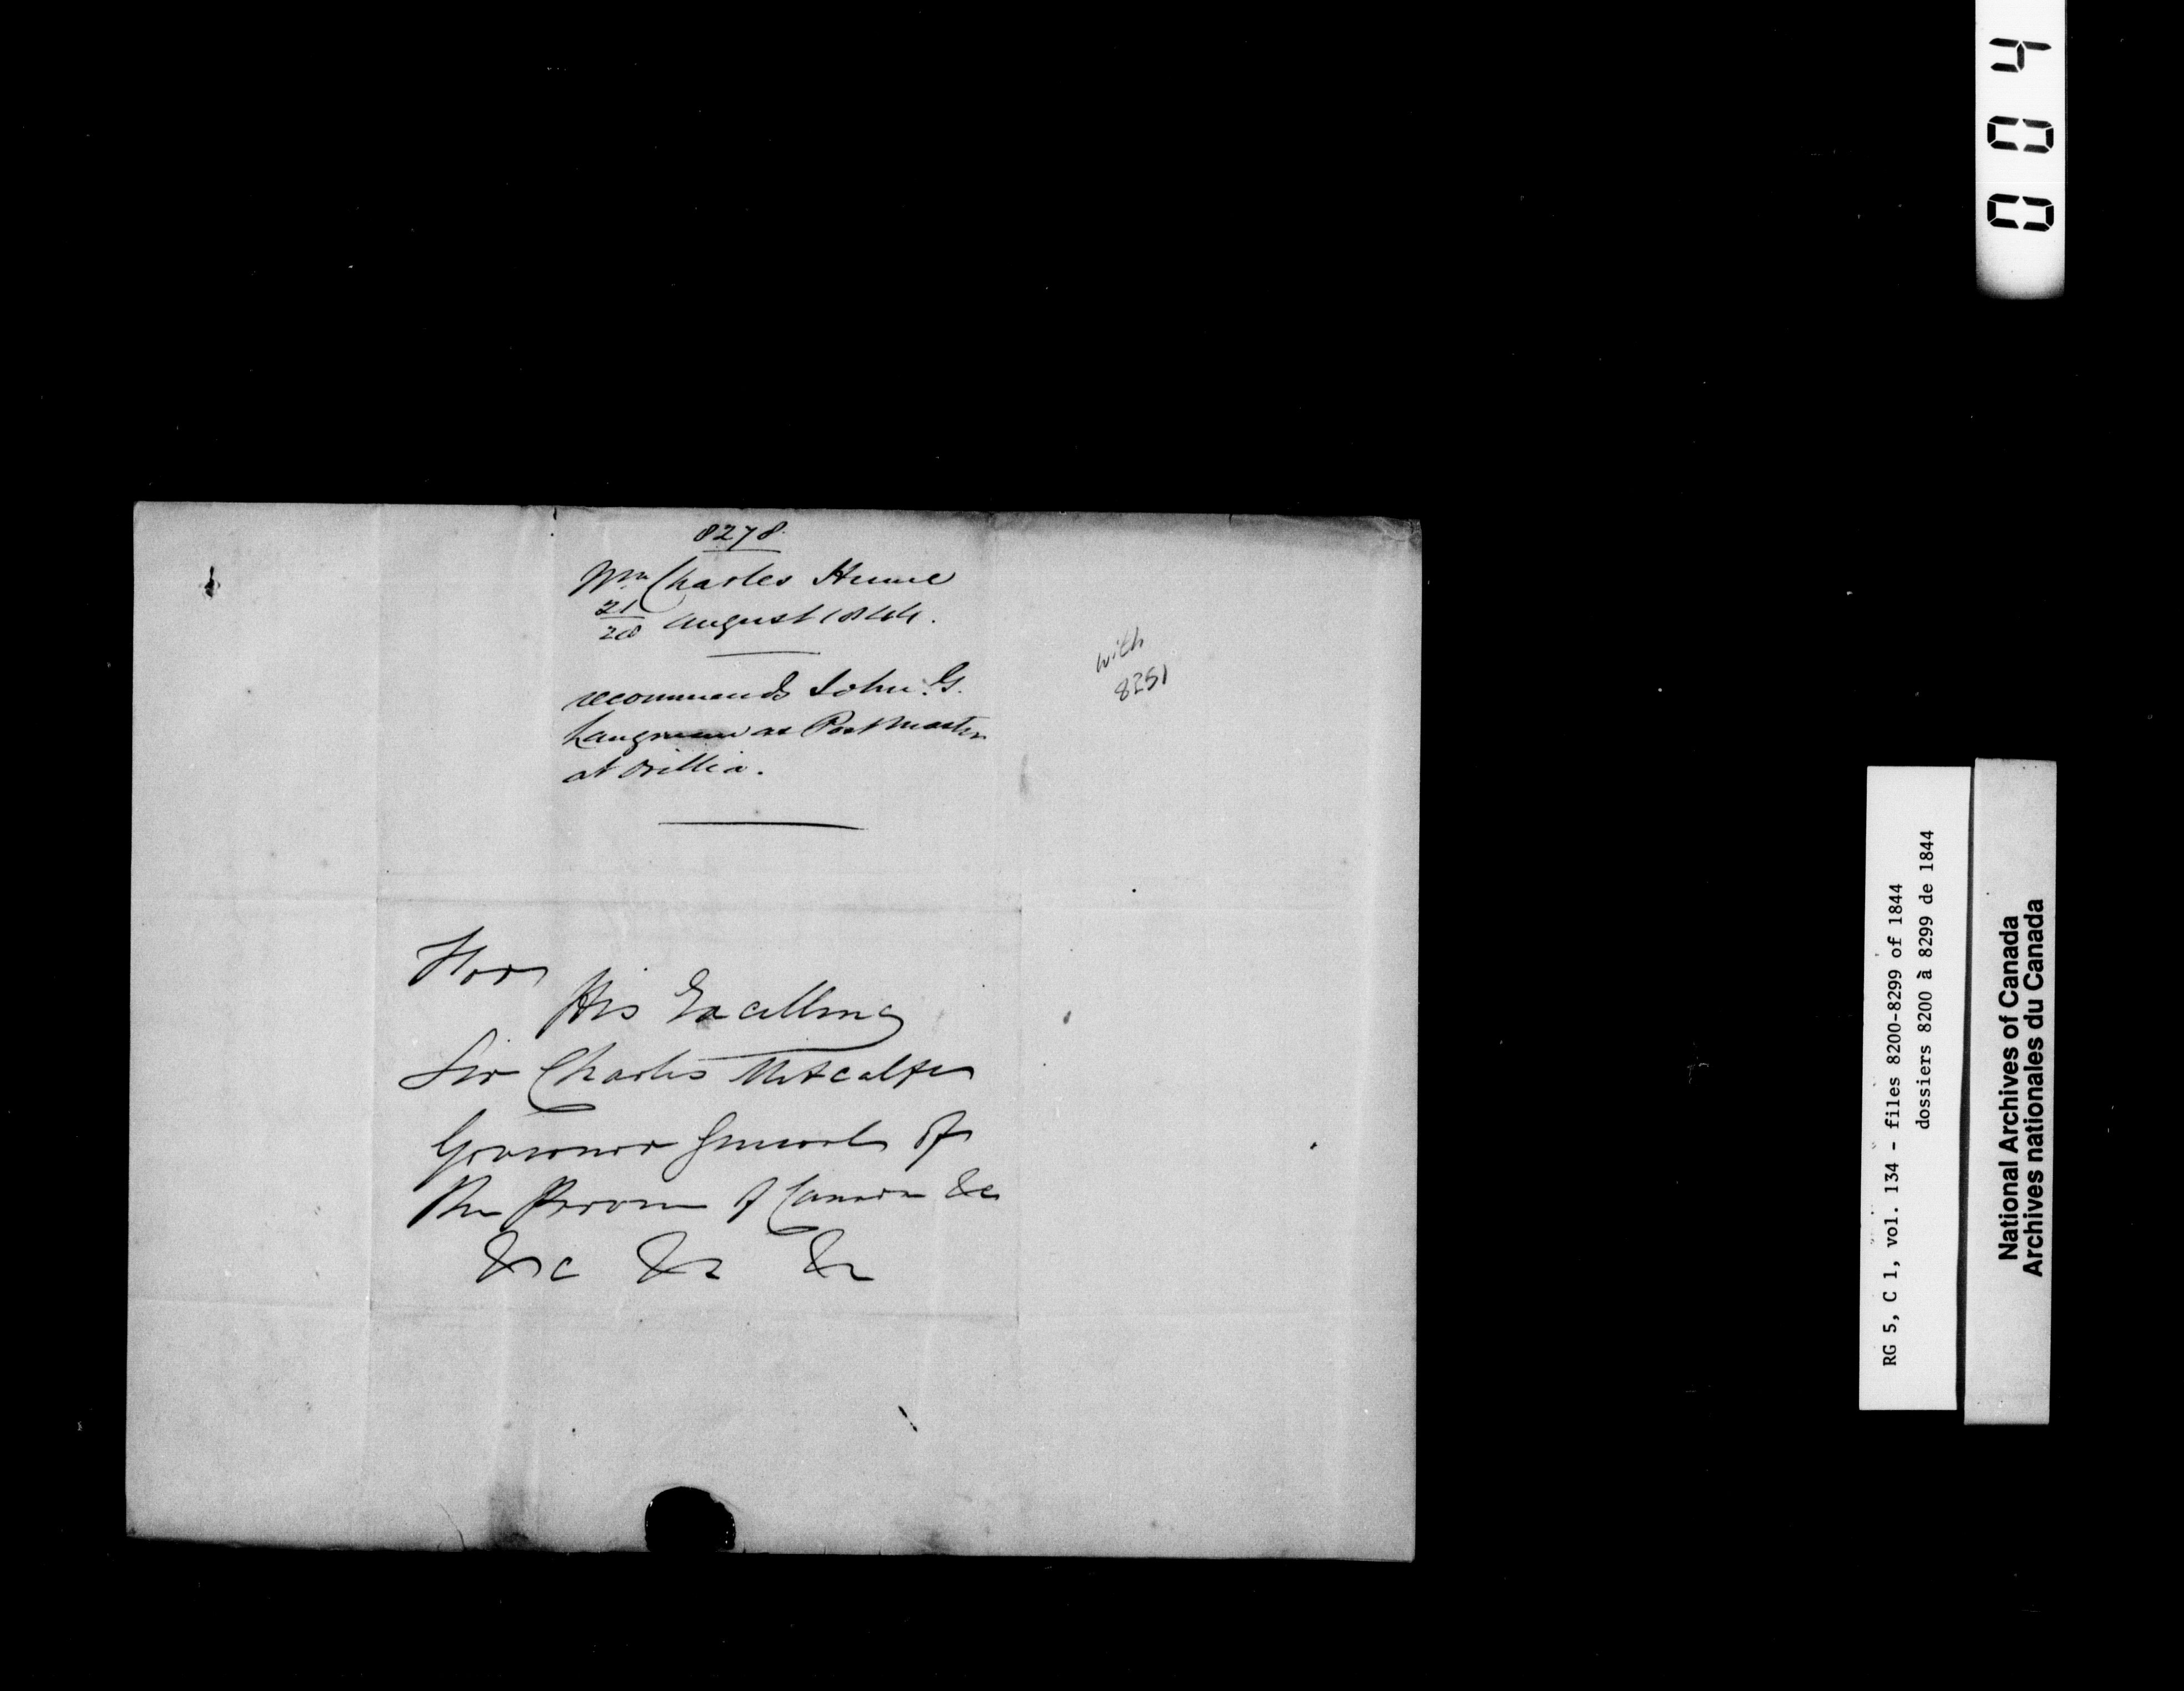 8278
Wm Charles Hume
21/28 August 1844.
recommends John G.
Langman as Postmaster
at Orillia.
with
8251
For
His Excellency
Sir Charles Metcalfe
Governor General of
The Province of Canada &c
&c &c &c
004
RG 5, C 1, vol. 134 - files 8200-8299 of 1844
dossiers 8200 à 8299 de 1844
National Archives of Canada
Archives nationales du Canada